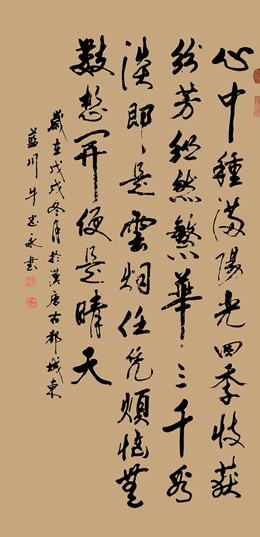 心中種滿陽光四季收获
紛芳縱然繁華三千看
淡即是雲烟任凭煩惱無
數想開便是晴天
歲在戊戌冬月於漢唐古都城東
藍川牛永書